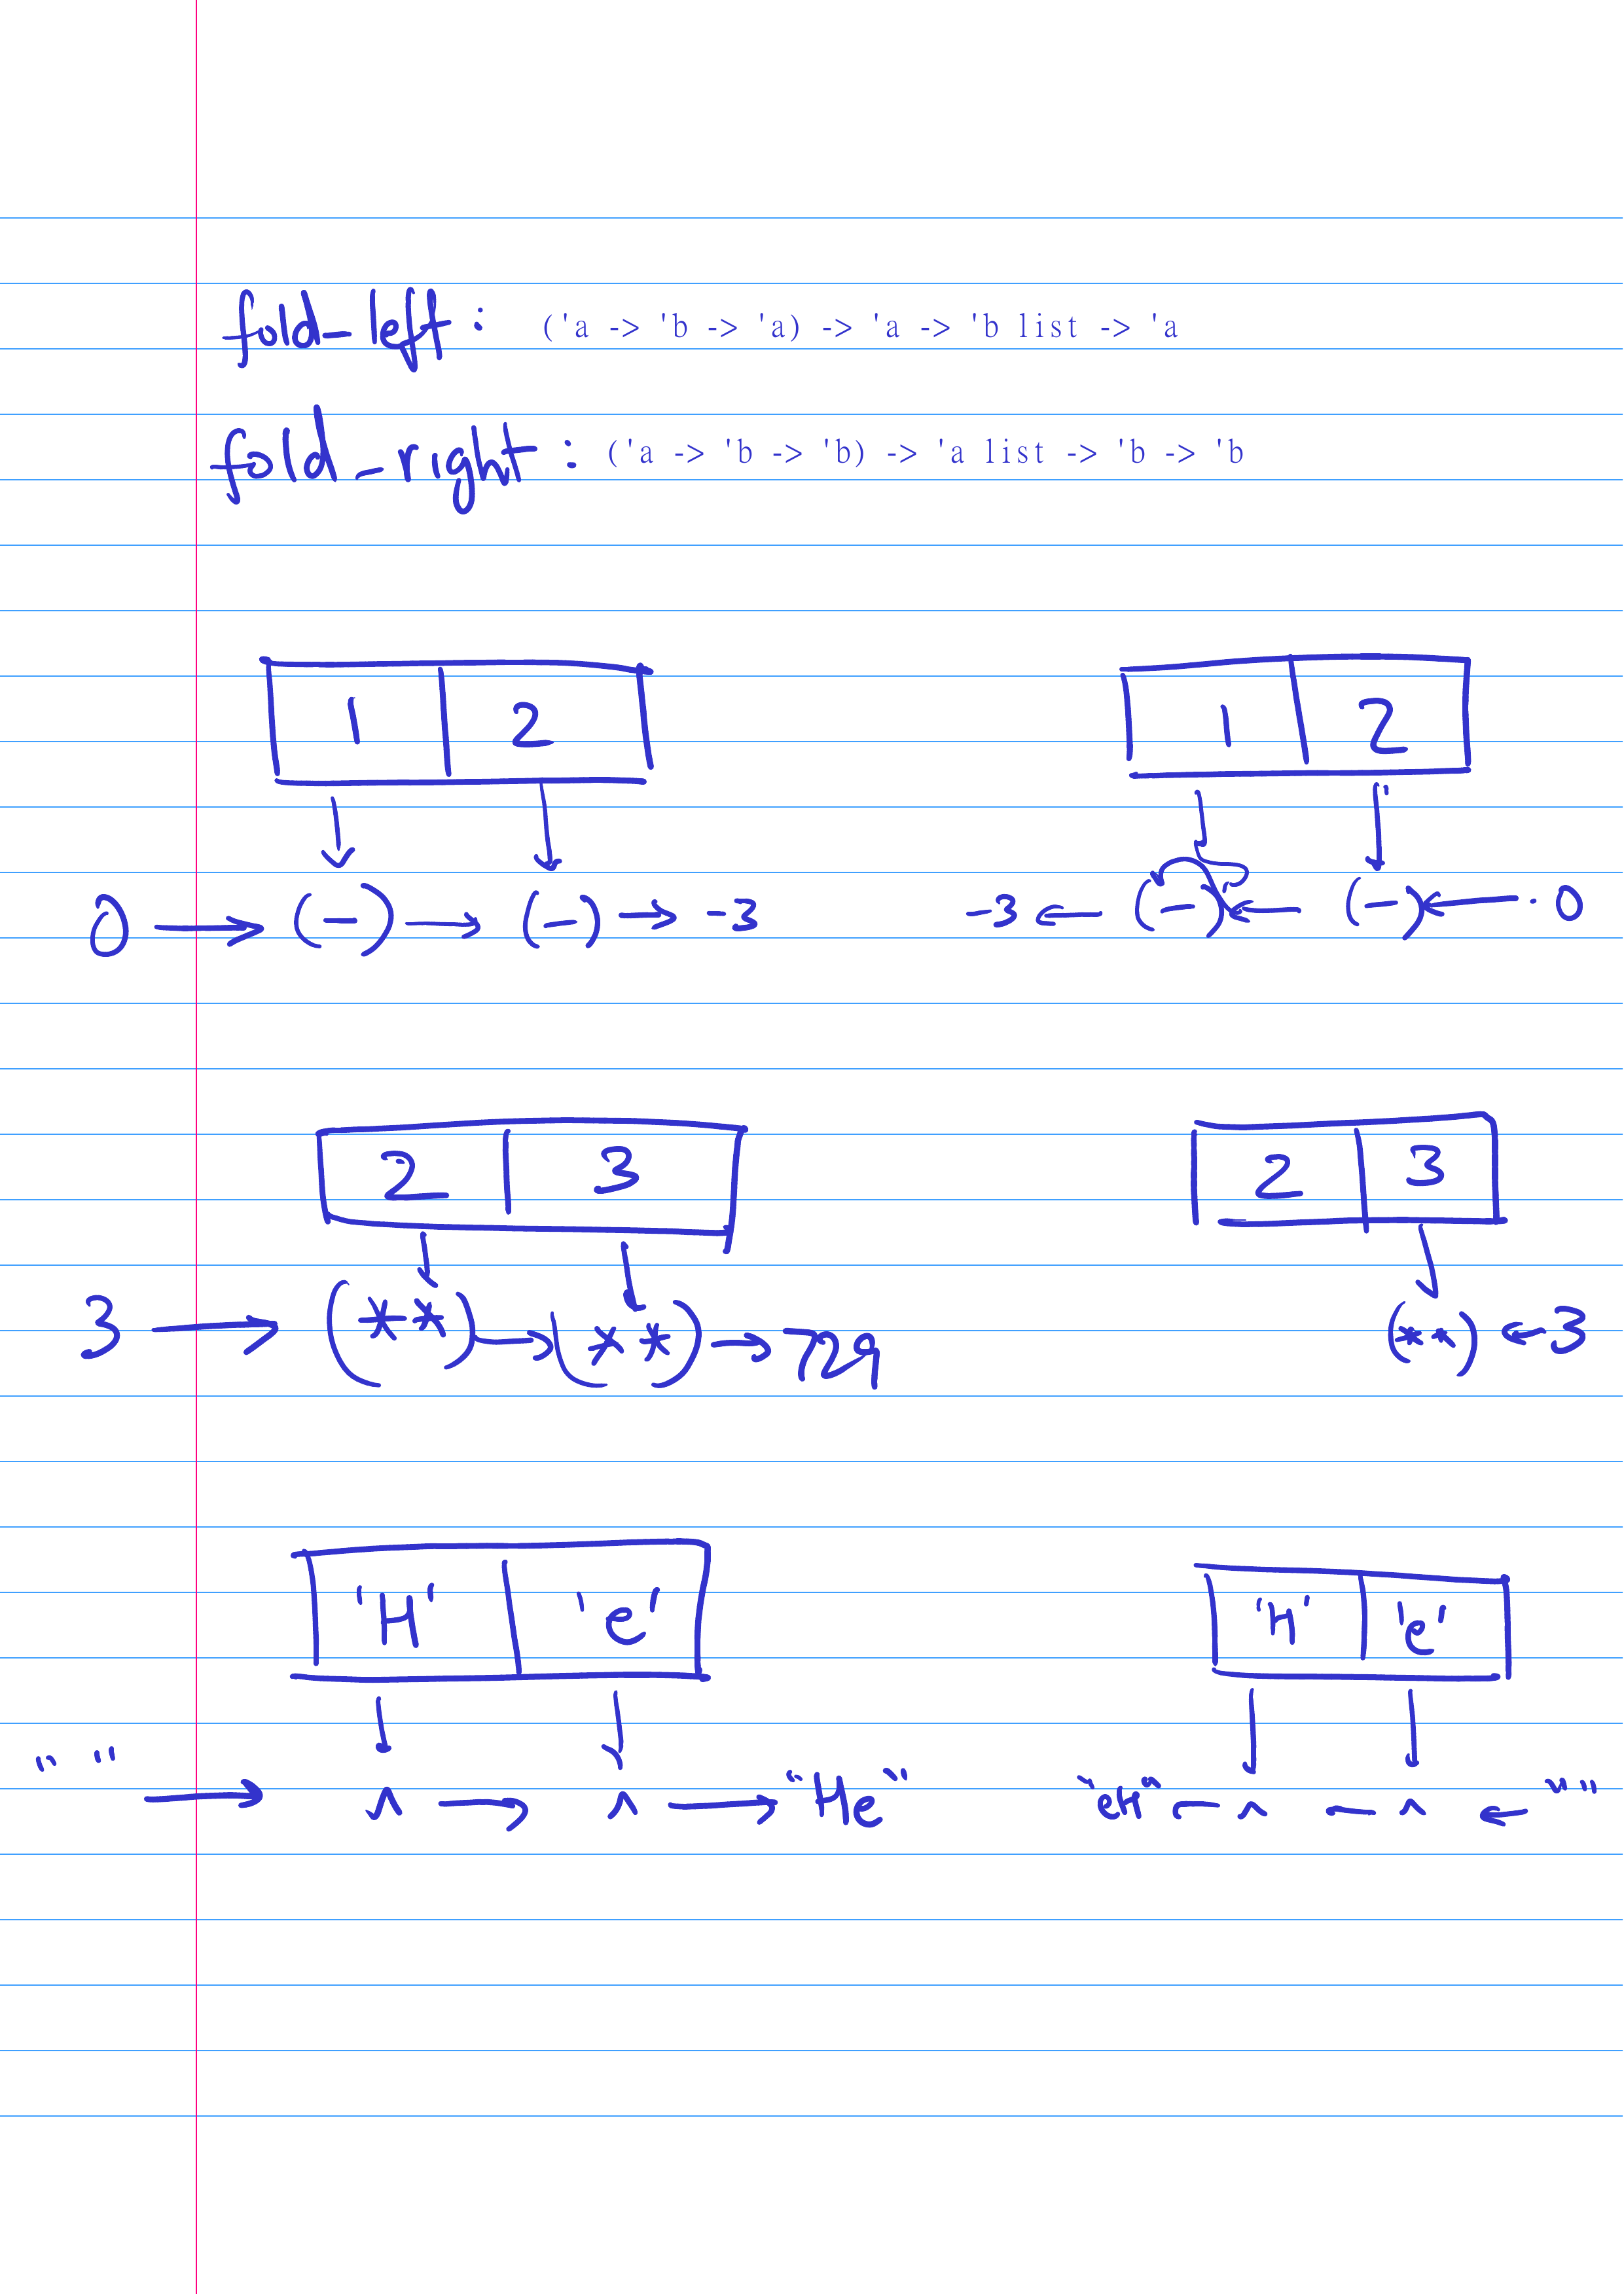 fold_left : ('a -> 'b -> 'a) -> 'a -> 'b list -> 'a
fold_right : ('a -> 'b -> 'b) -> 'a list -> 'b -> 'b
1 2 1 2
0 → (-) → (-) → -3 -3 ← (-) ← (-) ← 0
2 3 2 3
3 → (**) → (**) → 729 (**) ← 3
'H' 'e' 'H' 'e'
" " → ^ → ^ → "He" "eH" ← ^ — ^ ← ""